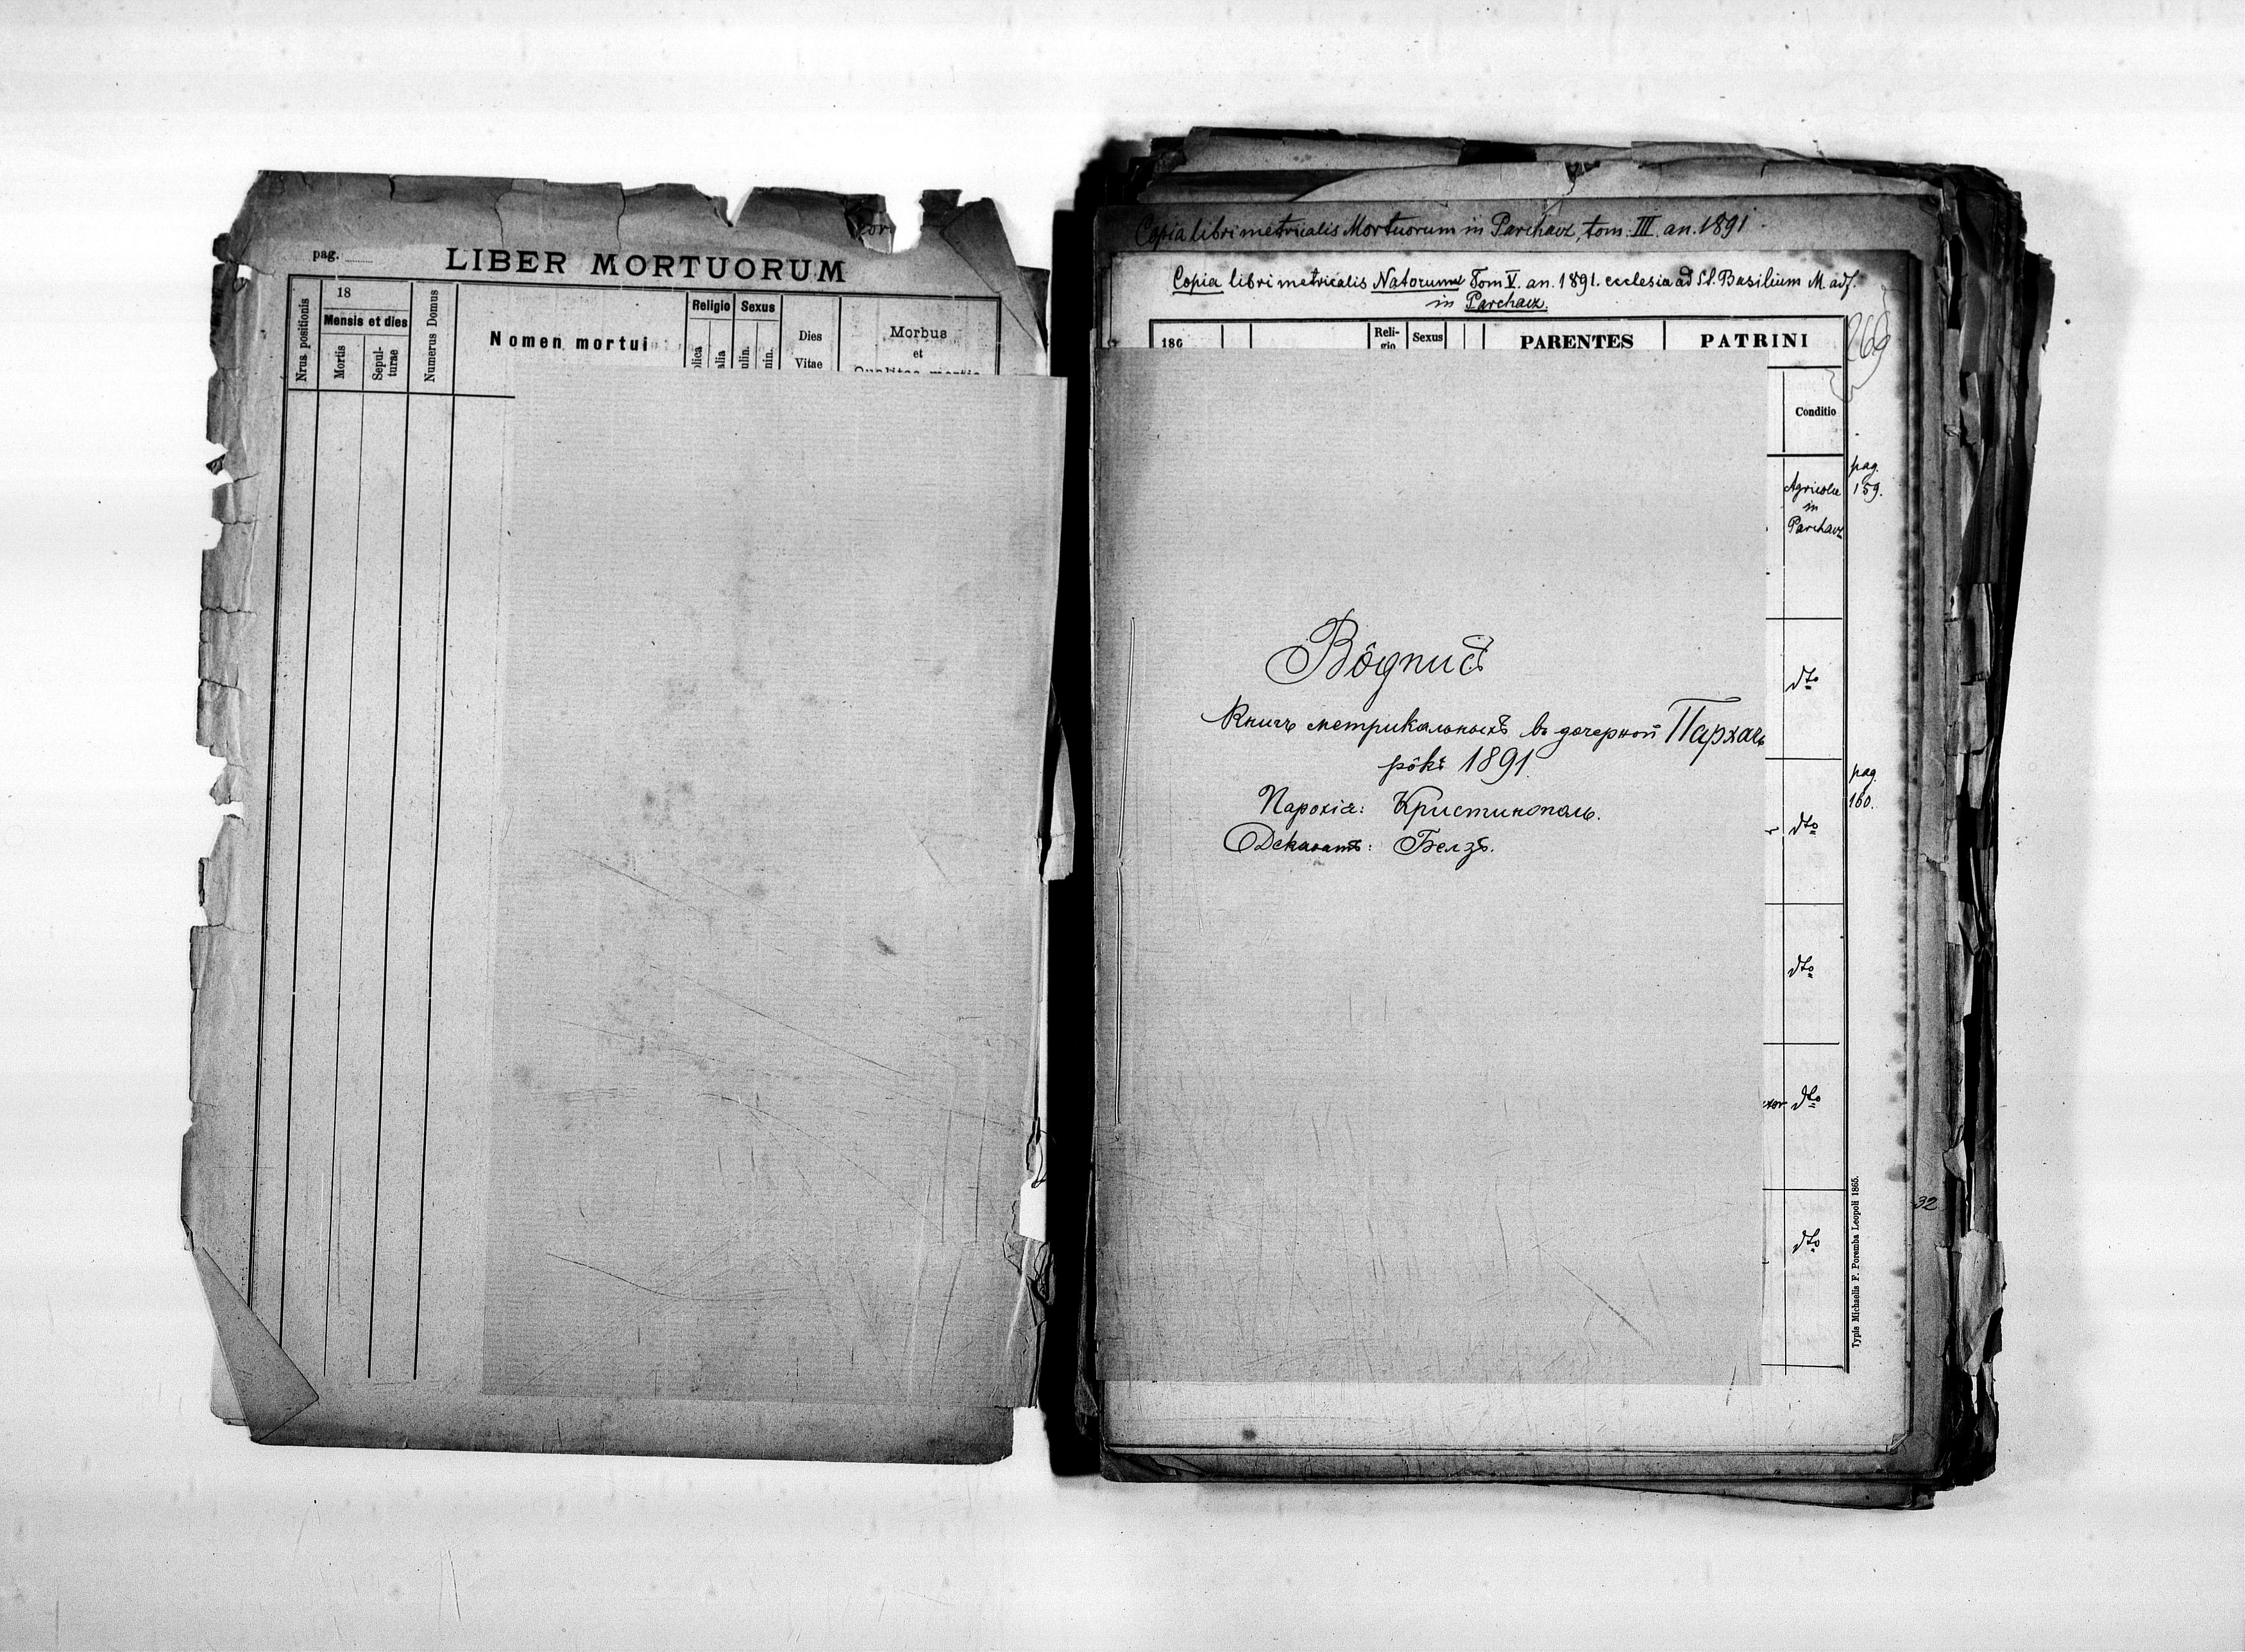 pag.
LIBER MORTUORUM
Nrus positionis
18
Mensis et dies
Mortis
Sepul-
turae
Numerus Domus
Nomen mortui
Religio
Sexus
Dies
Vitae
Morbus
et
Copia libri metricalis Mortuorum in Parchacz, tom. III. an. 1891
Copia libri metricalis Natorum Tom V. an. 1891. ecclesia ad S.S. Basilium M. adf.
in Parchacz.
186
Reli-
gio
Sexus
PARENTES
PATRINI
269
Conditio
pag.
159.
Agricolae
in
Parchacz
Вôдпис
Книгъ метрикальныхъ въ дочерной Пархачъ
рôкъ 1891.
Парохіа: Кристинополь.
Деканатъ: Белзъ.
dto
pag.
160.
dto
dto
dto
32
dto
Typis Michaelis F. Poremba Leopoli 1865.